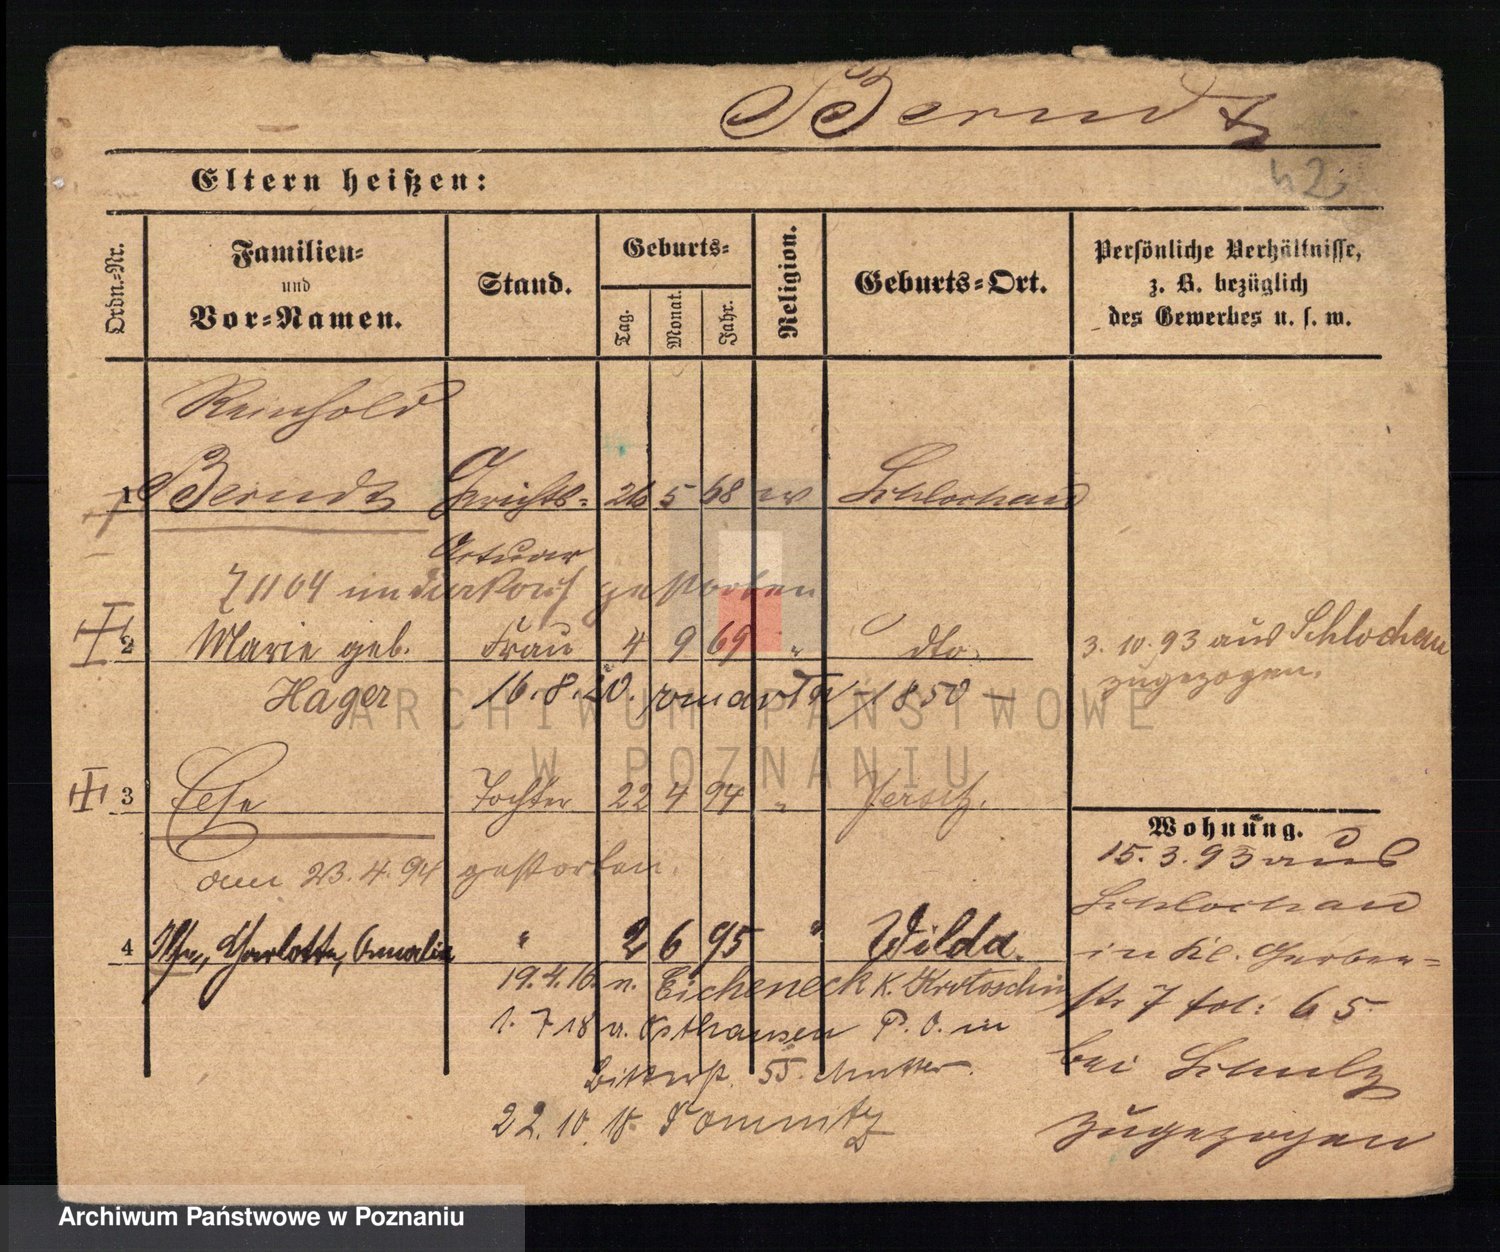 Berndt
42
Eltern heißen:
Ordn.-Nr.
Familien-
und
Vor-Namen.
Stand.
Geburts-
Tag.
Monat.
Jahr.
Religion.
Geburts-Ort.
Persönliche Verhältnisse,
z. B. bezüglich
des Gewerbes u. s. w.
Reinhold
1 Berndt Gerichts- 26 5 68 ev Schlochau
Actuar
7 11 04 in gestorben
2 Marie geb. Frau 4 9 69 " dto.
Hager 16. 8. 20.
3. 10. 93 aus Schlochau
zugezogen.
3 Else Tochter 22 4 94 " Jersitz.
am 23. 4. 94 gestorben.
4 Charlotte, Amalie " 2 6 95 " Wilda.
19. 4. 16. n. Eicheneck K. Krotoschin
1. 7 18 a. Osthausen P. O. in
Bitterstr. 55. Mutter.
22. 10. 18.
Wohnung.
15. 3. 93 aus
Schlochau
in Kl. Gerber-
str 7 fol: 65
bei Schulz
zugezogen
ARCHIWUM PAŃSTWOWE
W POZNANIU
Archiwum Państwowe w Poznaniu